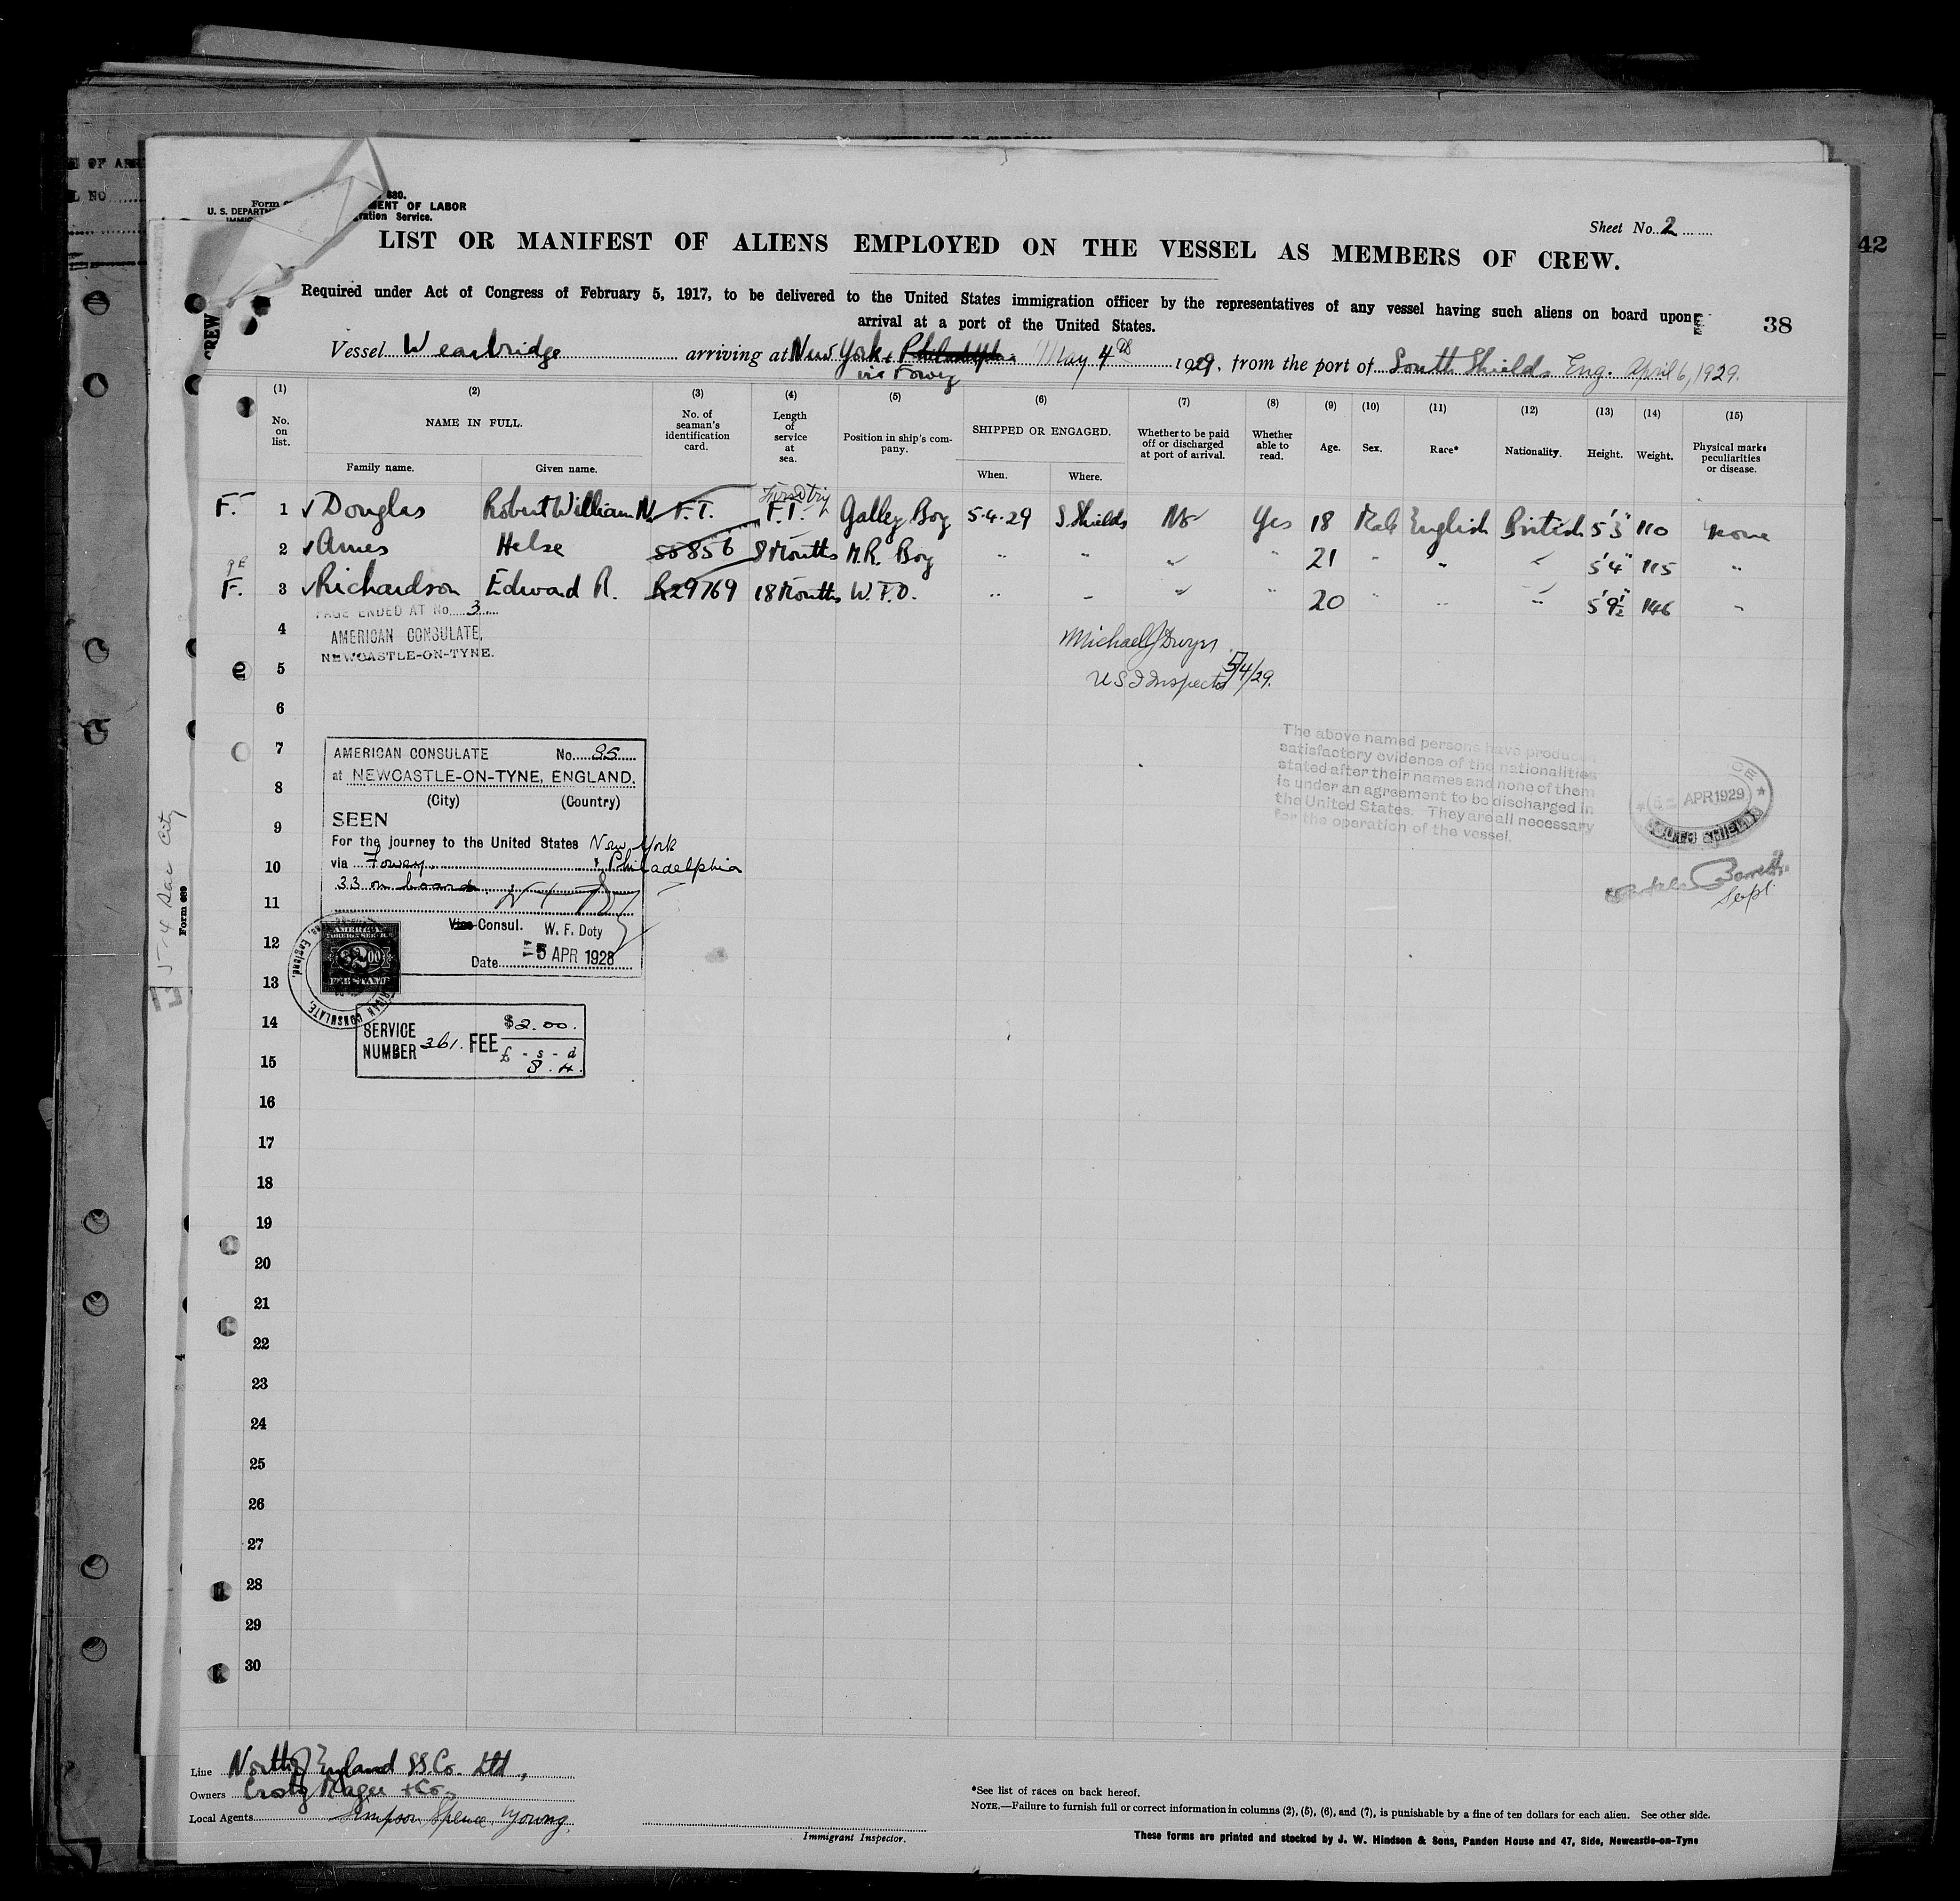 E OF ARR
L NO
42
Form 680.
U. S. DEPARTMENT OF LABOR
Immigration Service.
Sheet No. 2
LIST OR MANIFEST OF ALIENS EMPLOYED ON THE VESSEL AS MEMBERS OF CREW.
Required under Act of Congress of February 5, 1917, to be delivered to the United States immigration officer by the representatives of any vessel having such aliens on board upon
arrival at a port of the United States.
38
CREW
Vessel Wearbridge arriving at New York + Philadelphia May 4th 1929, from the port of South Shields Eng. April 6, 1929.
via Fowey
(1) (2) (3) (4) (5) (6) (7) (8) (9) (10) (11) (12) (13) (14) (15)
No. on list. NAME IN FULL. No. of seaman's identification card. Length of service at sea. Position in ship's company. SHIPPED OR ENGAGED. Whether to be paid off or discharged at port of arrival. Whether able to read. Age. Sex. Race* Nationality. Height. Weight. Physical marks peculiarities or disease.
Family name. Given name. When. Where.
First trip
F. 1 ✓ Douglas Robert William N. F.T. F.T. Galley Boy 5-4-29 S. Shields No Yes 18 Male English British 5'3" 110 None
2 ✓ Ames Helse 55856 8 Months M.R. Boy " " " " 21 " " " 5'4" 115 "
F. 3 ✓ Richardson Edward R. R29769 18 Months W.T.O. " " " " 20 " " " 5'9½" 146 "
PAGE ENDED AT No. 3
4
AMERICAN CONSULATE,
NEWCASTLE-ON-TYNE.
Michael J Dwyer
5
U S I Inspector 5/4/29.
6
7
AMERICAN CONSULATE No. 85
at NEWCASTLE-ON-TYNE, ENGLAND.
8
(City) (Country)
9
SEEN
For the journey to the United States New York
10
via Fowey & Philadelphia
33 on board
11
Vice Consul. W. F. Doty
12
Date 5 APR 1928
AMERICAN
FOREIGN SERVICE
$2.00
FEE STAMP
AMERICAN CONSULATE,
England.
13
14
SERVICE NUMBER 361. FEE $2.00.
£ - s - d
8 . 4
15
The above named persons have produced
satisfactory evidence of the nationalities
stated after their names and none of them
is under an agreement to be discharged in
the United States. They are all necessary
for the operation of the vessel.
APR 1929
SOUTH SHIELDS
Supt.
16
17
18
19
20
21
22
23
24
25
26
27
28
29
30
Form 689
Line North of England SS. Co. Ltd.,
Owners Crosby Magee + Co.
Local Agents Simpson Spence Young.
Immigrant Inspector.
*See list of races on back hereof.
NOTE.—Failure to furnish full or correct information in columns (2), (5), (6), and (7), is punishable by a fine of ten dollars for each alien. See other side.
These forms are printed and stocked by J. W. Hindson & Sons, Pandon House and 47, Side, Newcastle-on-Tyne